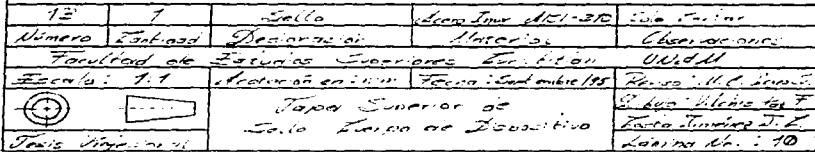 12 1 Sello Acero Inox AISI-310
Número Cantidad Designación Material Observaciones
Facultad de Estudios Superiores Cuautitlán UNAM
Escala: 1:1 Acotación en: mm Fecha: Septiembre/95 Reviso: M.C.
Tapa Superior de
Sello Cuerpo de Dispositivo
Dibujo: Vilchis
Jiménez J.
Tesis Lámina No. : 10